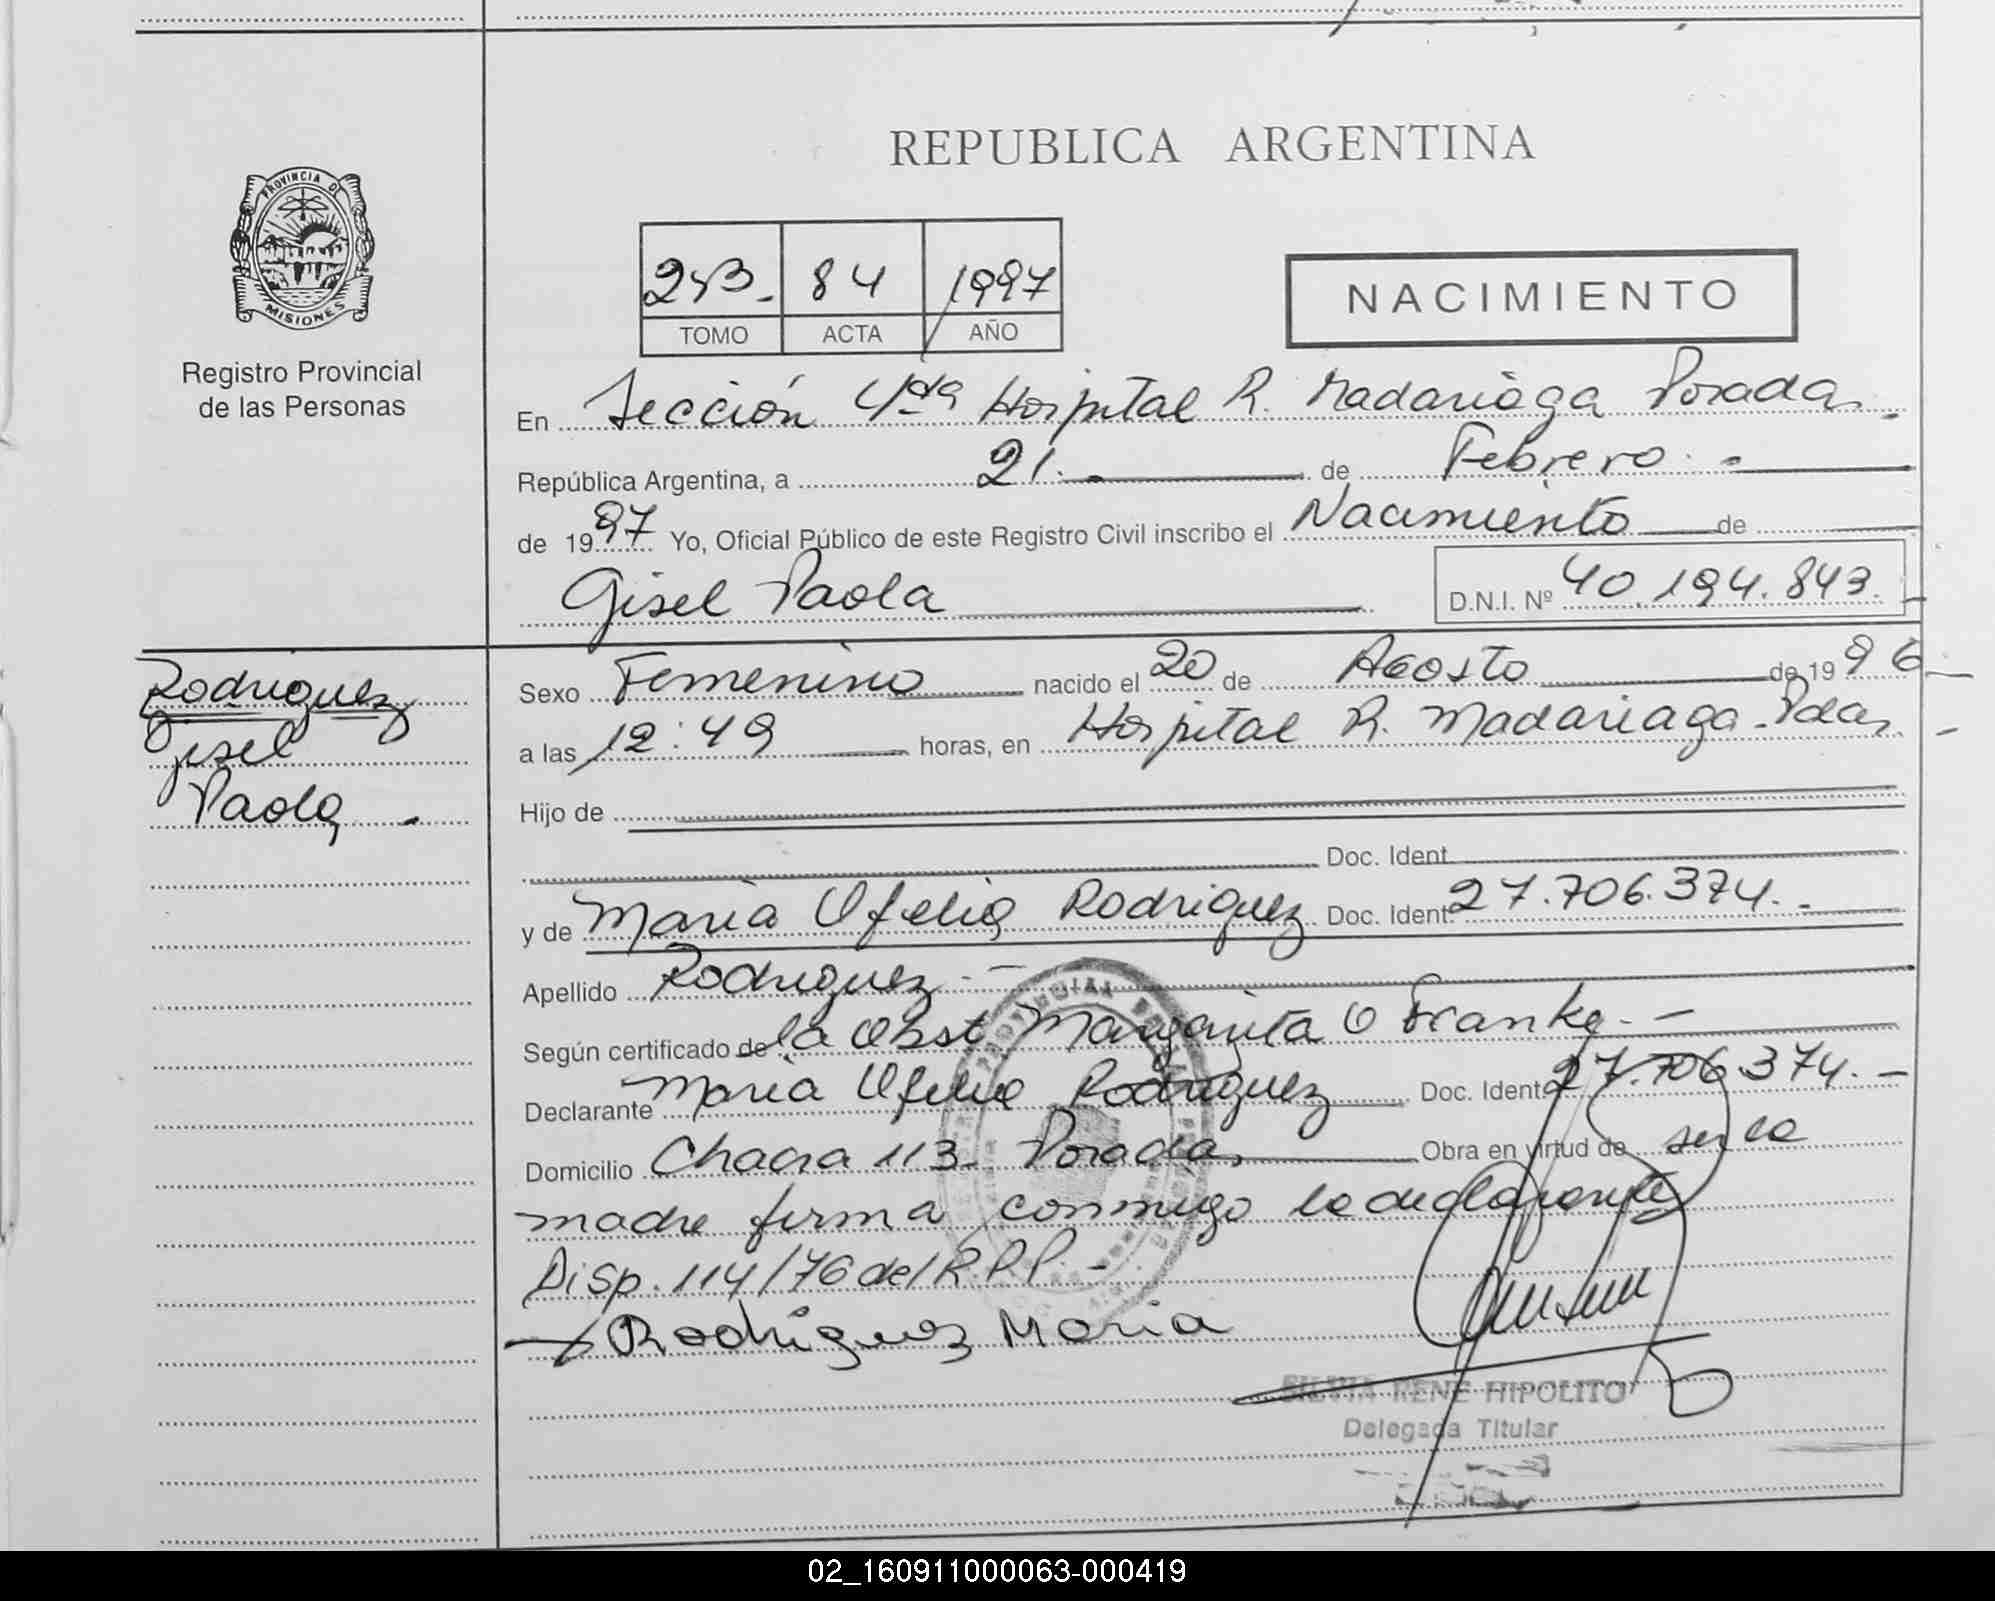 REPUBLICA ARGENTINA
PROVINCIA DE
MISIONES
Registro Provincial
de las Personas
84 1997
TOMO ACTA AÑO
NACIMIENTO
En Sección Hospital R. Madariaga Posadas.-
República Argentina, a 21.- de Febrero.-
de 1997 Yo, Oficial Público de este Registro Civil inscribo el Nacimiento de
Gisel Paola D.N.I. Nº 40.194.843.-
Rodriguez
Gisel
Paola.-
Sexo Femenino nacido el 20 de Agosto de 1996-
a las 12:49 horas, en Hospital R. Madariaga-Pdas,-
Hijo de
Doc. Ident.
y de Maria Ofelia Rodriguez Doc. Ident. 27.706.374.-
Apellido Rodriguez.-
Según certificado de la Obst Margarita O Franke.-
Declarante Maria Ofelia Rodriguez Doc. Ident. 27.706.374.-
Domicilio Chacra 113 Posadas, Obra en virtud de ser la
madre firma conmigo la declarante
Disp. 114/76 del R.P.P.-
Rodriguez Maria
SILVIA RENE HIPOLITO
Delegada Titular
02_160911000063-000419